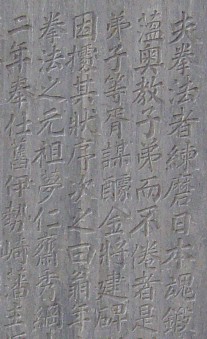 夫拳法者練磨日本魂鍛
蘊奥教子弟而不倦者是
弟子等胥謀醵金將建碑
因懐其状序次之曰翁年
拳法之元祖夢仁斎秀綱
二年奉仕舊伊勢崎藩主